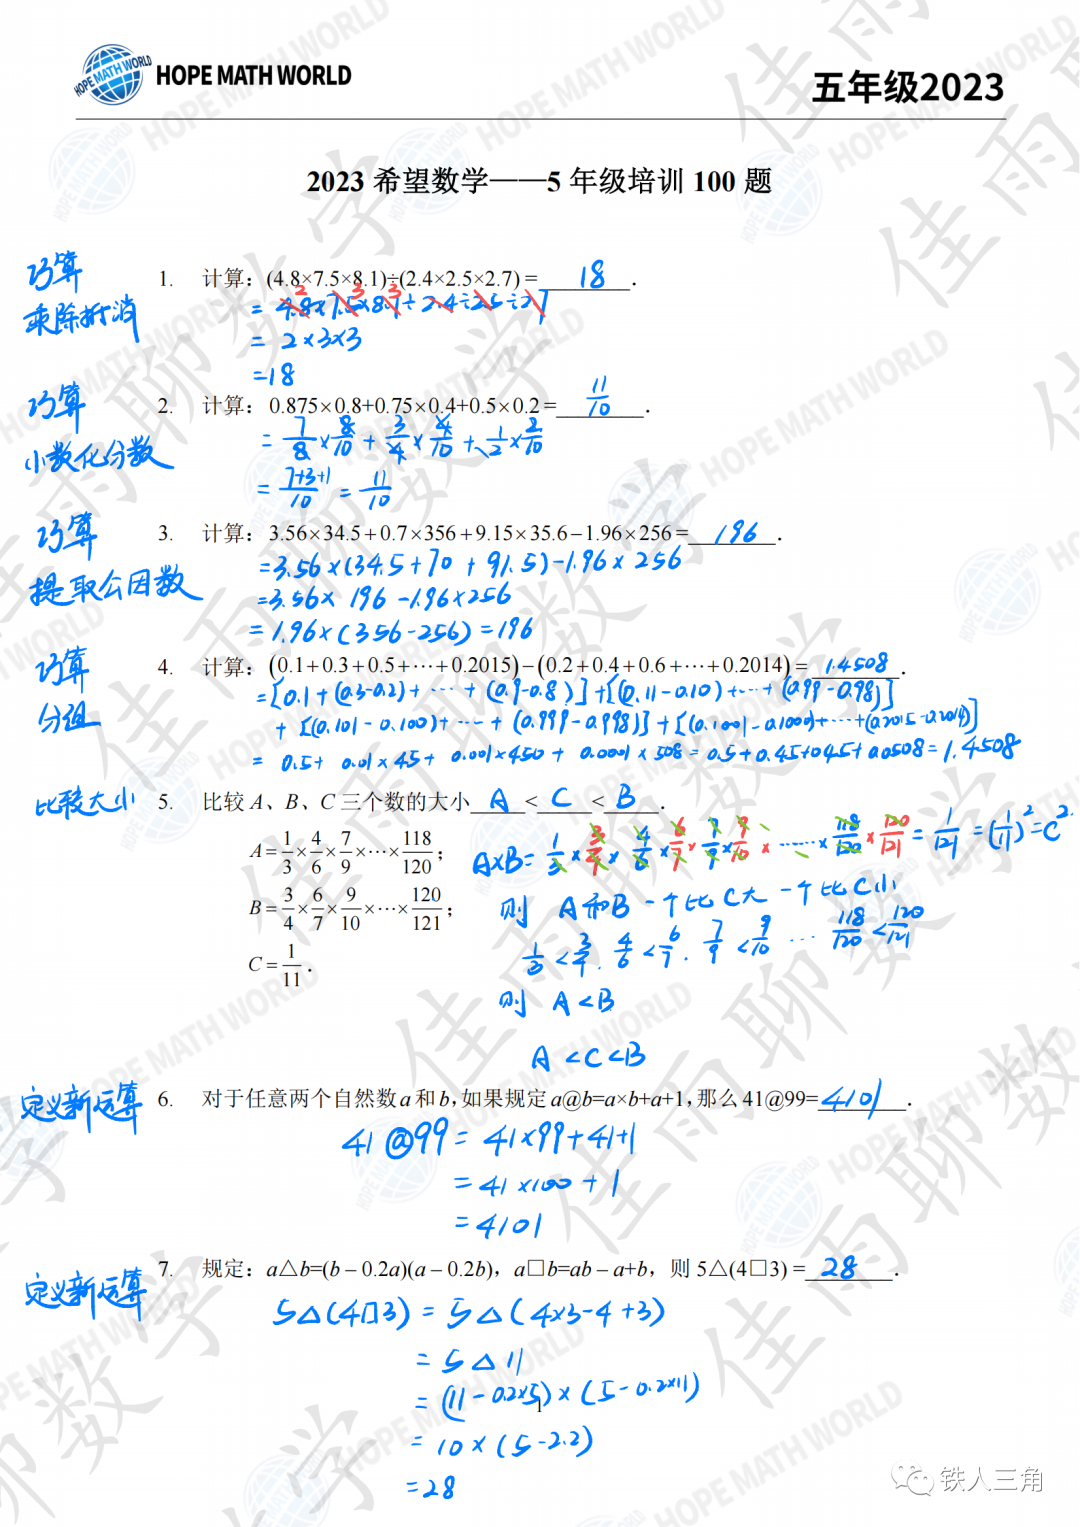 HOPE MATH WORLD
五年级2023
2023 希望数学——5 年级培训 100 题
巧算
乘除抵消
1. 计算：(4.8×7.5×8.1)÷(2.4×2.5×2.7) = 18 .
= 4.8×7.5×8.1÷2.4÷2.5÷2.7
2 3 3
= 2×3×3
=18
巧算
小数化分数
2. 计算：0.875×0.8+0.75×0.4+0.5×0.2 = 11/10 .
= 7/8 × 8/10 + 3/4 × 4/10 + 1/2 × 2/10
= 7+3+1/10 = 11/10
巧算
提取公因数
3. 计算：3.56×34.5+0.7×356+9.15×35.6−1.96×256 = 196 .
=3.56×(34.5+70+91.5)−1.96×256
=3.56×196−1.96×256
=1.96×(356−256)=196
巧算
分组
4. 计算：(0.1+0.3+0.5+⋯+0.2015)−(0.2+0.4+0.6+⋯+0.2014) = 1.4508 .
=[0.1+(0.3−0.2)+⋯+(0.9−0.8)]+[(0.11−0.10)+⋯+(0.99−0.98)]
+[(0.101−0.100)+⋯+(0.999−0.998)]+[(0.1001−0.1000)+⋯+(0.2015−0.2014)]
= 0.5+0.01×45+0.001×450+0.0001×508=0.5+0.45+0.45+0.0508=1.4508
比较大小
5. 比较 A、B、C 三个数的大小 A < C < B .
A = 1/3 × 4/6 × 7/9 ×⋯× 118/120 ;
B = 3/4 × 6/7 × 9/10 ×⋯× 120/121 ;
C = 1/11 .
A×B = 1/3 × 3/4 × 4/6 × 6/7 × 7/9 × 9/10 ×⋯× 118/120 × 120/121 = 1/121 = (1/11)² = C²
则 A和B 一个比C大 一个比C小
1/3 < 3/4 . 4/6 < 6/7 . 7/9 < 9/10 ⋯ 118/120 < 120/121
则 A<B
A<C<B
定义新运算
6. 对于任意两个自然数a和b,如果规定a@b=a×b+a+1,那么41@99= 4101 .
41@99 = 41×99+41+1
= 41×100+1
= 4101
定义新运算
7. 规定：a△b=(b – 0.2a)(a – 0.2b)，a□b=ab – a+b，则 5△(4□3) = 28 .
5△(4□3) = 5△(4×3−4+3)
= 5△11
= (11−0.2×5)×(5−0.2×11)
= 10×(5−2.2)
=28
1
铁人三角
佳雨聊数学